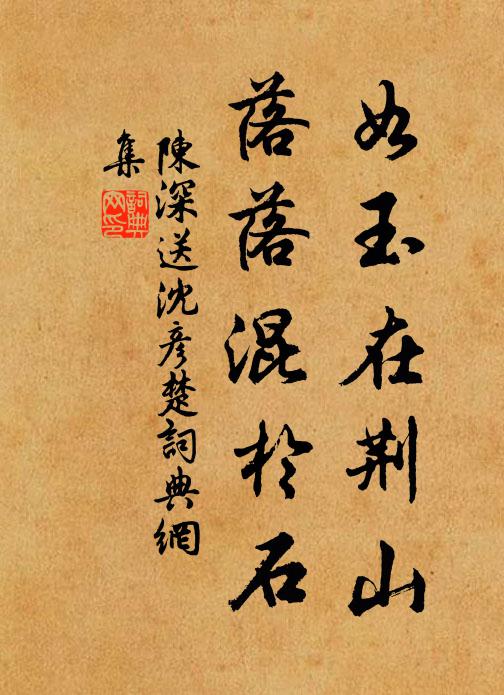 如玉在荆山
落落混於石
陳深送沈彥楚詞典網
集
詞典
网印